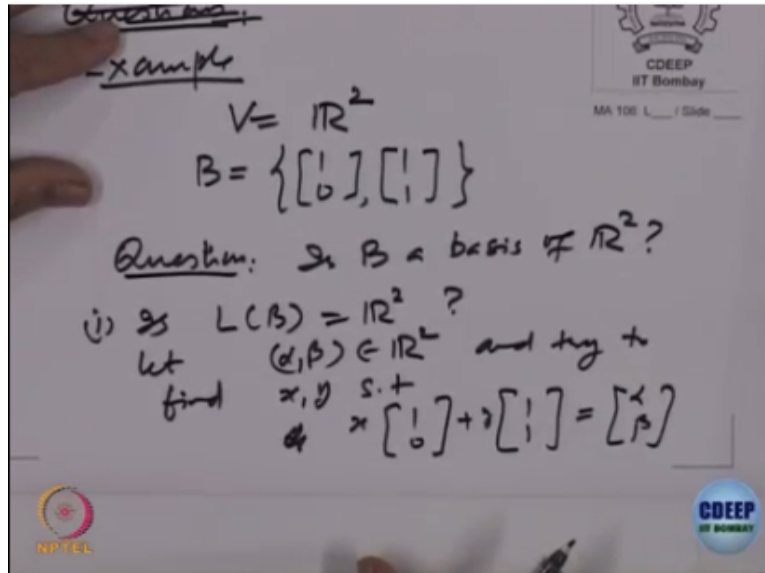 Questions:
Example
CDEEP
IIT Bombay
MA 106 L___ / Slide ___
V = ℝ²
B = {[1 0], [1 1]}
Question: Is B a basis of ℝ²?
(i) Is L(B) = ℝ² ?
let (α,β) ∈ ℝ² and try to
find x, y s.t
x [1 0] + y [1 1] = [α β]
NPTEL
CDEEP
IIT BOMBAY